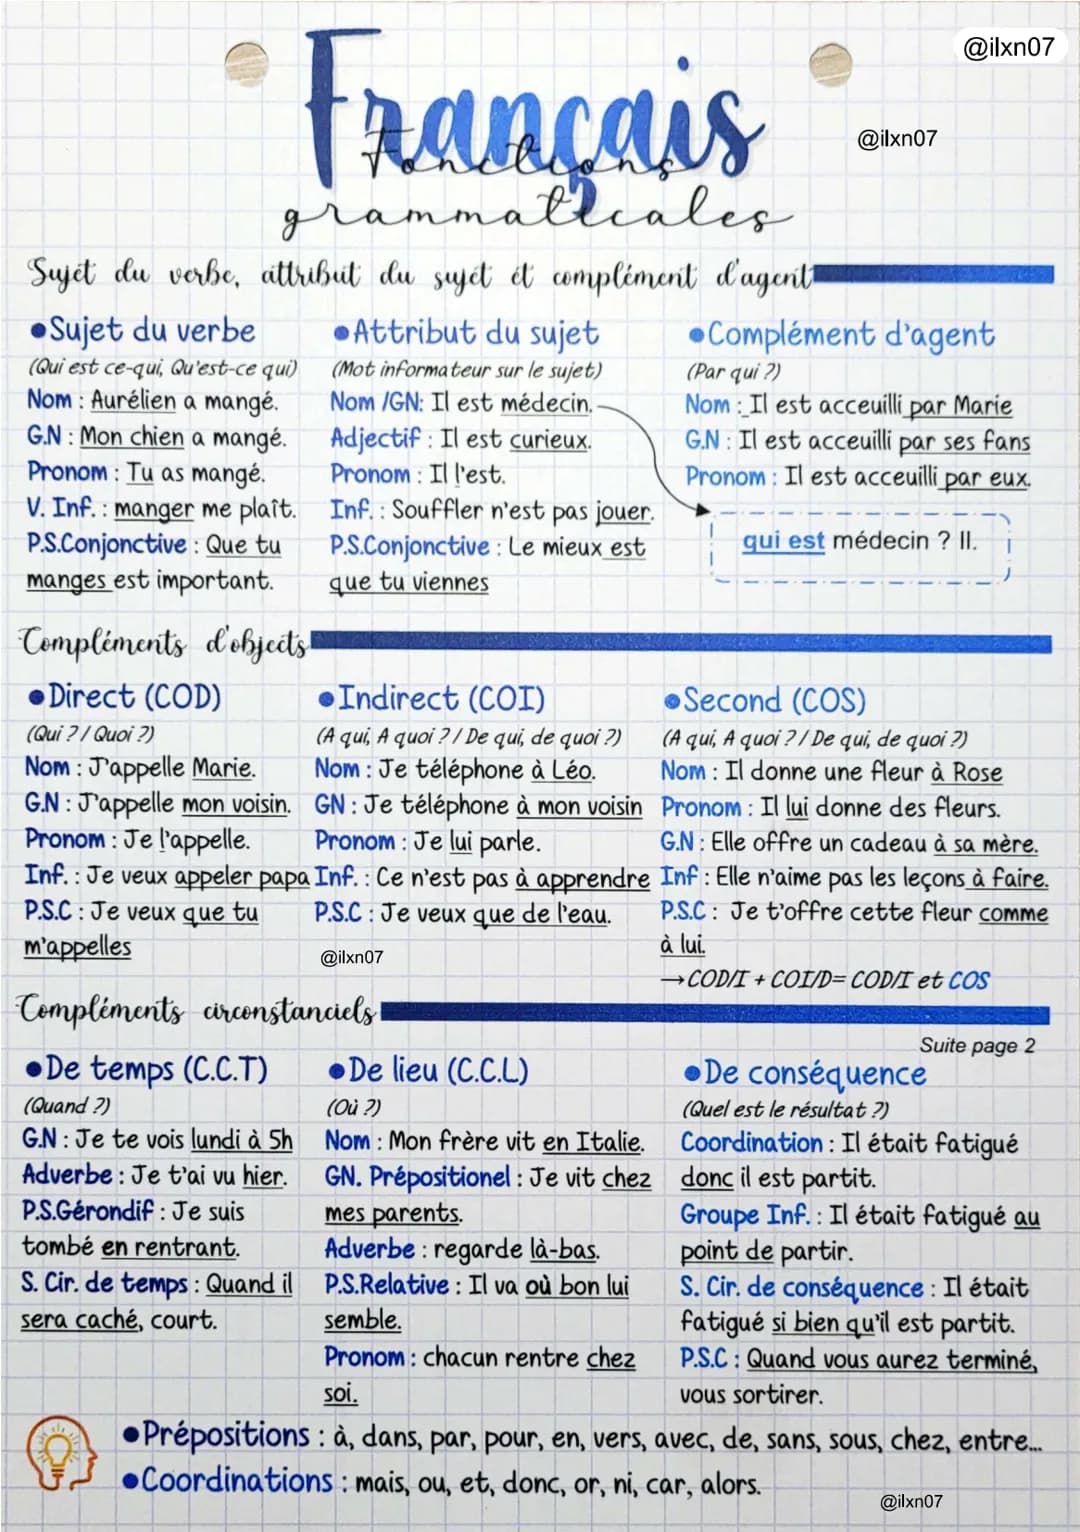 @ilxn07
Français
@ilxn07
Fonctions
grammaticales
Sujet du verbe, attribut du sujet et complément d'agent
●Sujet du verbe
(Qui est ce-qui, Qu'est-ce qui)
Nom : Aurélien a mangé.
G.N : Mon chien a mangé.
Pronom : Tu as mangé.
V. Inf. : manger me plaît.
P.S.Conjonctive : Que tu
manges est important.
●Attribut du sujet
(Mot informateur sur le sujet)
Nom /GN: Il est médecin.
Adjectif : Il est curieux.
Pronom : Il l'est.
Inf. : Souffler n'est pas jouer.
P.S.Conjonctive : Le mieux est
que tu viennes
●Complément d'agent
(Par qui ?)
Nom : Il est acceuilli par Marie
G.N : Il est acceuilli par ses fans
Pronom : Il est acceuilli par eux.
qui est médecin ? Il.
Compléments d'objects
●Direct (COD)
(Qui ? / Quoi ?)
Nom : J'appelle Marie.
G.N : J'appelle mon voisin.
Pronom : Je l'appelle.
Inf. : Je veux appeler papa
P.S.C : Je veux que tu
m'appelles
●Indirect (COI)
(A qui, A quoi ? / De qui, de quoi ?)
Nom : Je téléphone à Léo.
GN : Je téléphone à mon voisin
Pronom : Je lui parle.
Inf. : Ce n'est pas à apprendre
P.S.C : Je veux que de l'eau.
@ilxn07
●Second (COS)
(A qui, A quoi ? / De qui, de quoi ?)
Nom : Il donne une fleur à Rose
Pronom : Il lui donne des fleurs.
G.N : Elle offre un cadeau à sa mère.
Inf : Elle n'aime pas les leçons à faire.
P.S.C : Je t'offre cette fleur comme
à lui.
→COD/I + COI/D= COD/I et COS
Compléments circonstanciels
Suite page 2
●De temps (C.C.T)
(Quand ?)
G.N : Je te vois lundi à 5h
Adverbe : Je t'ai vu hier.
P.S.Gérondif : Je suis
tombé en rentrant.
S. Cir. de temps : Quand il
sera caché, court.
●De lieu (C.C.L)
(Où ?)
Nom : Mon frère vit en Italie.
GN. Prépositionel : Je vit chez
mes parents.
Adverbe : regarde là-bas.
P.S.Relative : Il va où bon lui
semble.
Pronom : chacun rentre chez
soi.
●De conséquence
(Quel est le résultat ?)
Coordination : Il était fatigué
donc il est partit.
Groupe Inf. : Il était fatigué au
point de partir.
S. Cir. de conséquence : Il était
fatigué si bien qu'il est partit.
P.S.C : Quand vous aurez terminé,
vous sortirer.
●Prépositions : à, dans, par, pour, en, vers, avec, de, sans, sous, chez, entre...
●Coordinations : mais, ou, et, donc, or, ni, car, alors.
@ilxn07